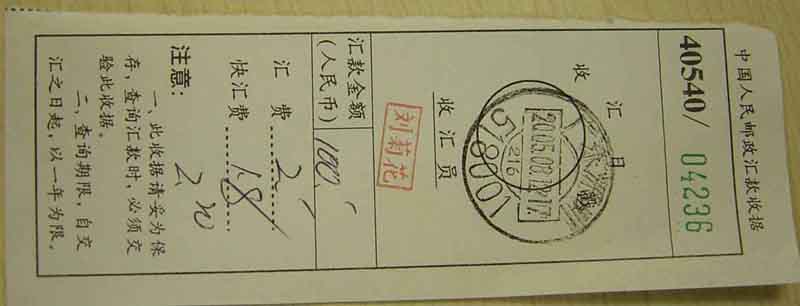 中国人民邮政汇款收据
40540/ 04236
收汇日戳
2005.08.12.17
216
518001
收汇员
刘菊花
汇款金额
(人民币)
1000.
汇费
2.
快汇费
18
20
注意：
一、此收据请妥为保
存，查询汇款时，必须交
验此收据。
二、查询期限，自交
汇之日起，以一年为限。